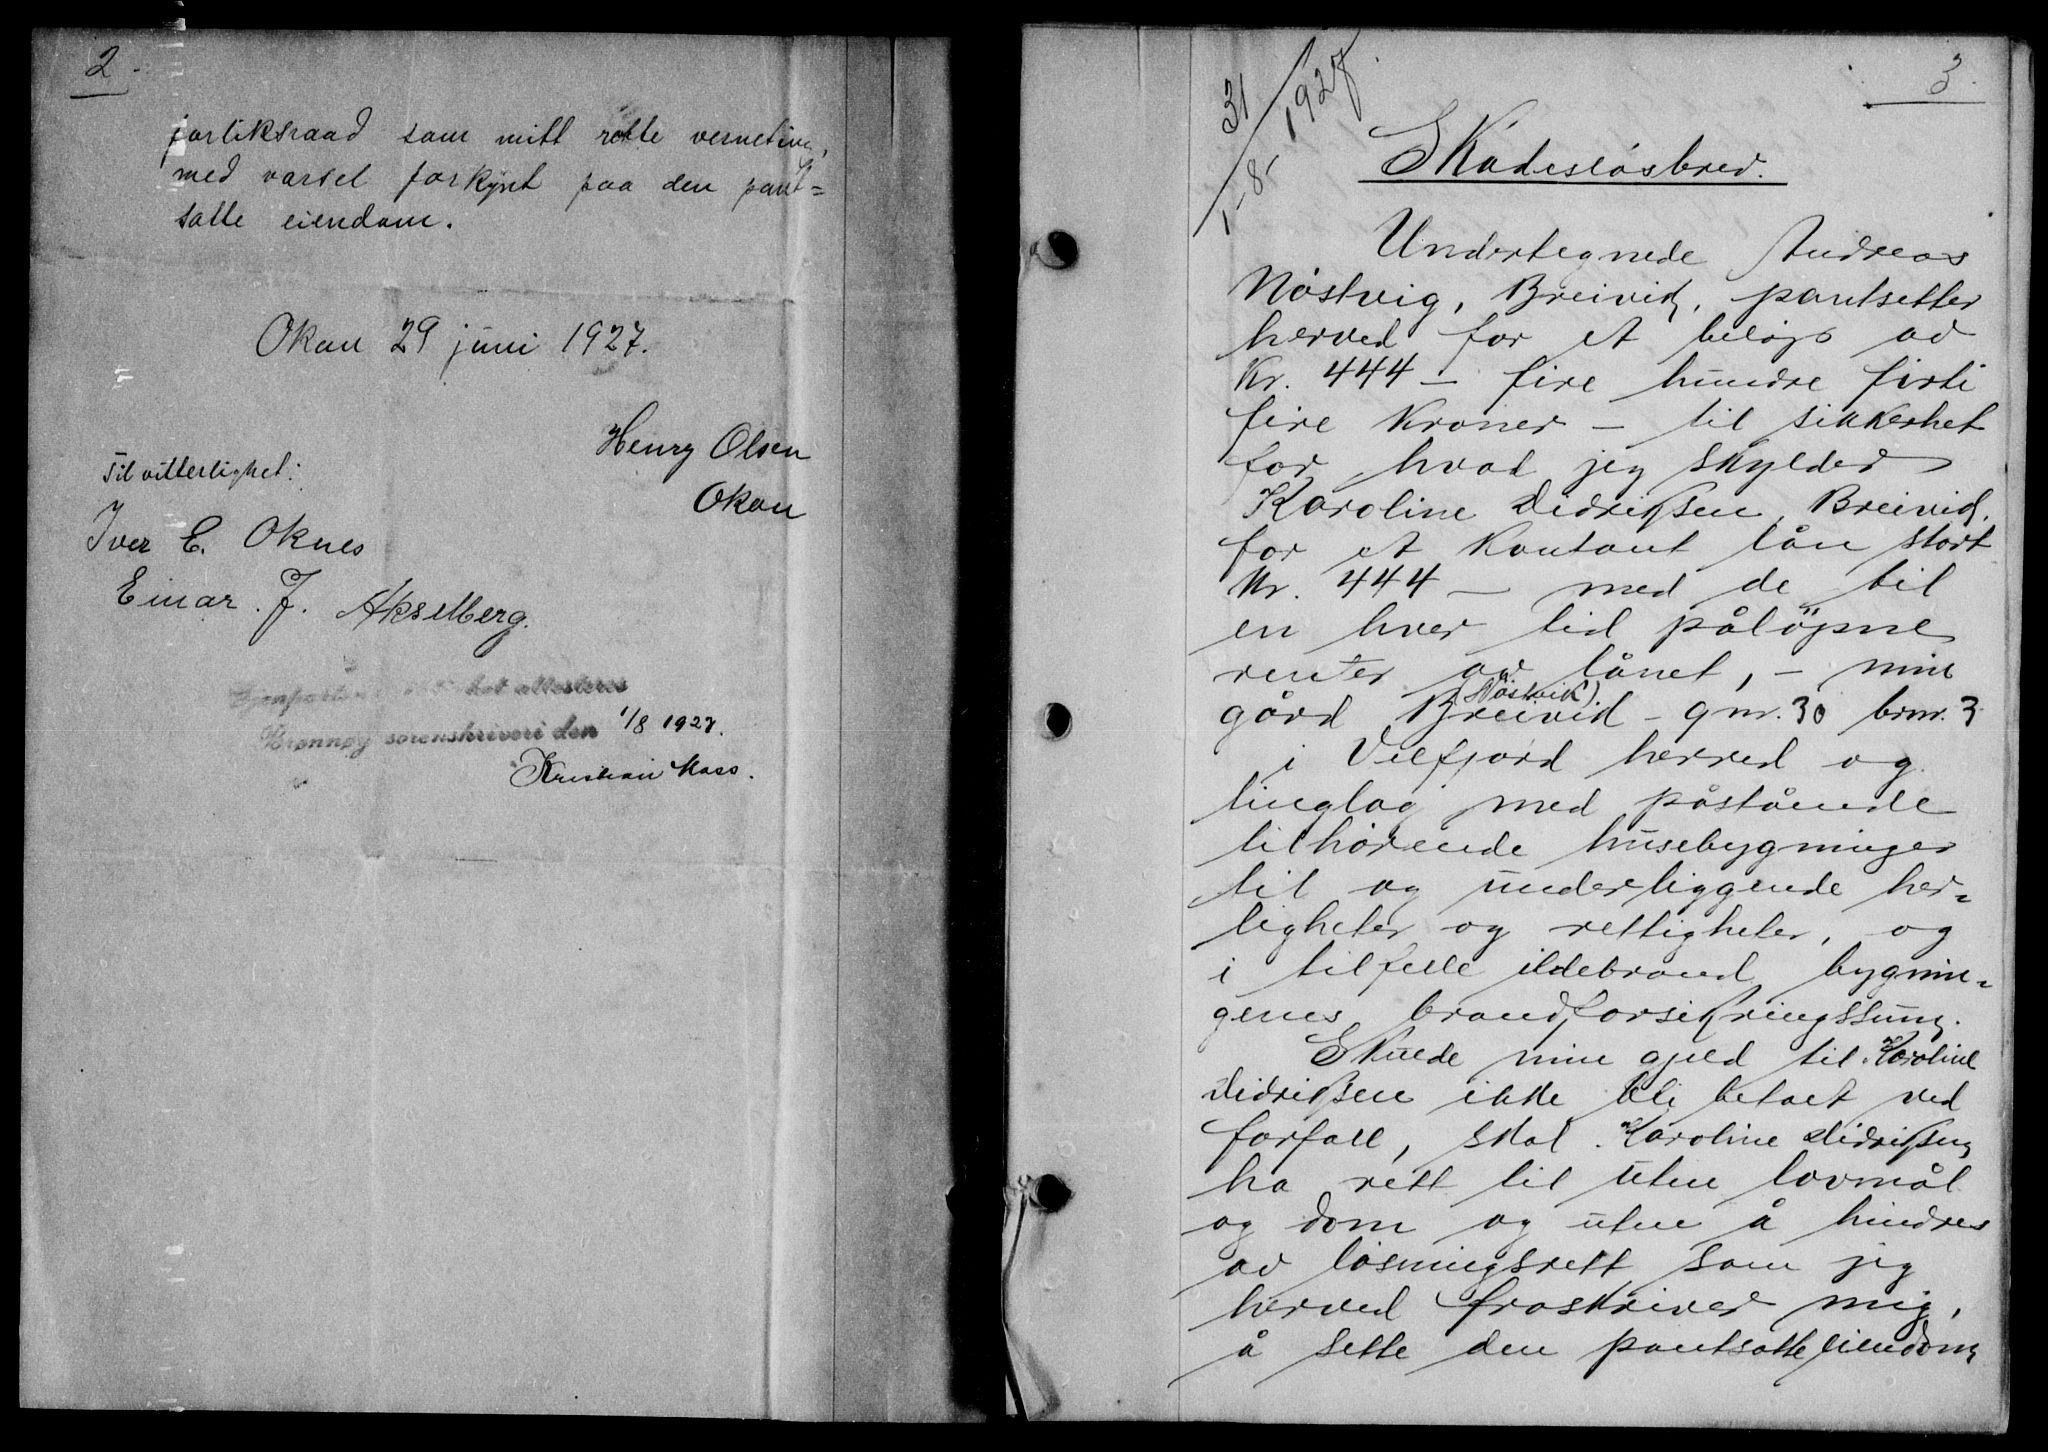 2
forliksraad som mitt rette verneting,
med varsel forkynt paa den pant=
satte eiendom.
Okan 29 juni 1927.
Henry Olsen
Okan
Til vitterlighet:
Iver E. Oknes
Einar. J. Akselberg.
Gjenpartens riktighet attesteres
Brønnøy sorenskriveri den 1/8 1927.
Kristian Moss.
3.
31/1-8-1927.
Skadesløsbrev.
Undertegnede Andreas
Nøstvig, Breivid, pantsetter
herved for et beløp av
Kr. 444 – fire hundre firti
fire kroner – til sikkerhet
for hvad jeg skylder
Karoline Didriksen, Breivid,
for et kontant lån stort
Kr. 444 – med de til
en hver tid påløpne
renter av lånet, – min
(Nøstvik)
gård Breivid – gnr. 30 brnr. 3
i Velfjord herred og
tinglag med påstående
tilhørende husebygninger
til og underliggende her=
ligheter og rettigheter, og
i tilfelle ildebrand bygnin=
genes brandforsikringssum.
Skulde min gjeld til Karoline
Didriksen ikke bli betalt ved
forfall, skal Karoline Didriksen
ha rett til uten lovmål
og dom og uten å hindres
av løsningsrett som jeg
herved fraskriver mig,
å sette den pantsatte eiendom